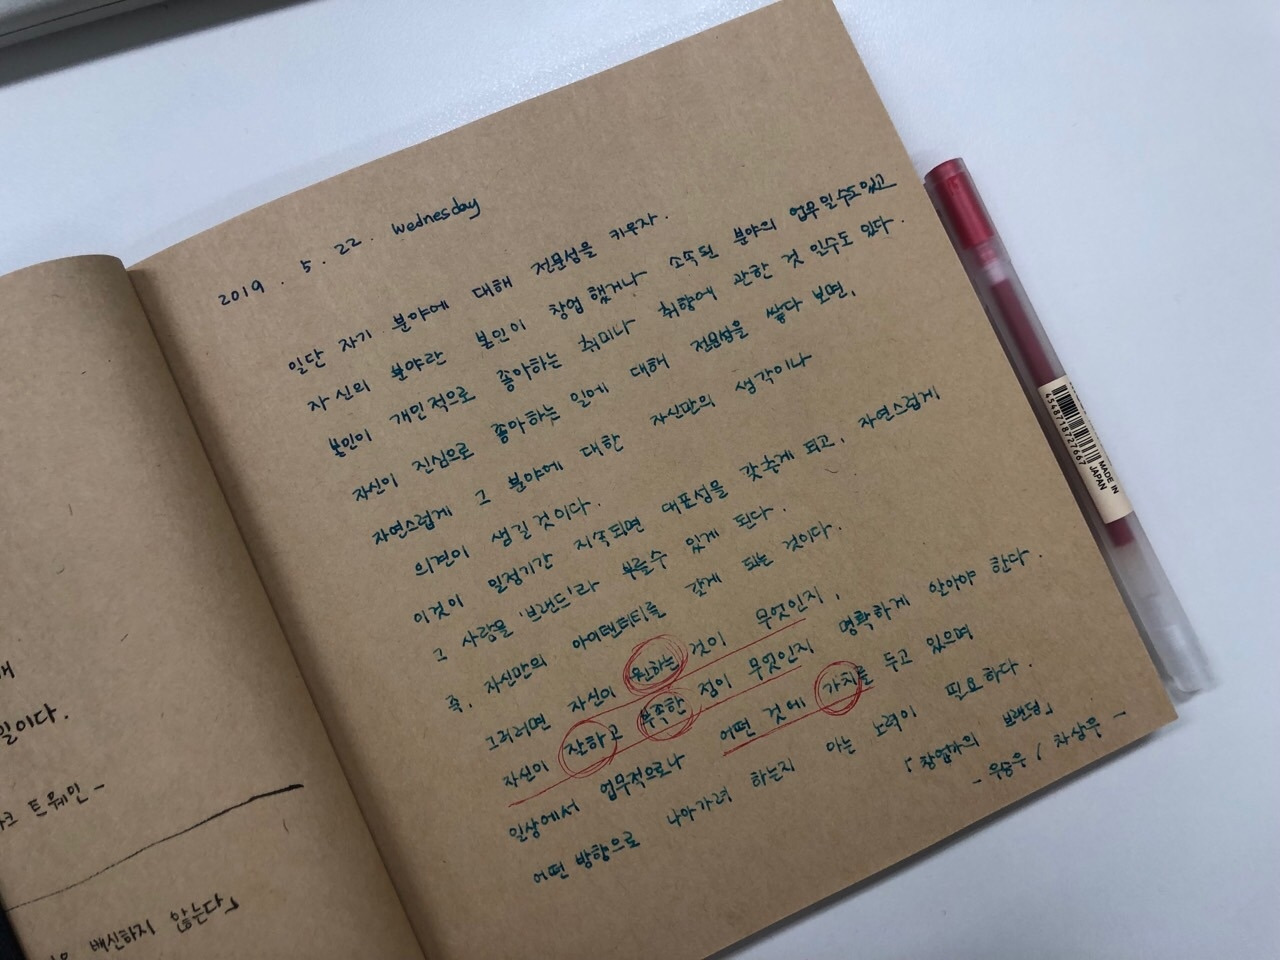 2019. 5. 22. Wednesday
일단 자기 분야에 대해 전문성을 키우자.
자신의 분야란 본인이 창업했거나 소속된 분야의 업무일수도있고
본인이 개인적으로 좋아하는 취미나 취향에 관한 것 일수도 있다.
자신이 진심으로 좋아하는 일에 대해 전문성을 쌓다 보면,
자연스럽게 그 분야에 대한 자신만의 생각이나
의견이 생길 것이다.
이것이 일정기간 지속되면 대표성을 갖추게 되고, 자연스럽게
그 사람을 '브랜드'라 부를수 있게 된다.
즉, 자신만의 아이텐티티를 갖게 되는 것이다.
그러려면 자신이 원하는 것이 무엇인지,
자신이 잘하고 부족한 점이 무엇인지 명확하게 알아야 한다.
일상에서 업무적으로나 어떤 것에 가치를 두고 있으며
어떤 방향으로 나아가려 하는지 아는 노력이 필요하다.
「창업가의 브랜딩」
- 우승우 / 차상우 -
일이다.
크 트웨인 -
배신하지 않는다」
4548718727667
MADE IN
JAPAN